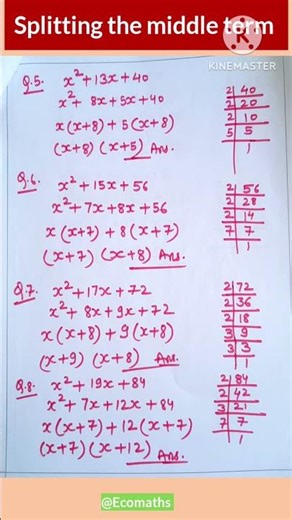 Splitting the middle term
KINEMASTER
Q.5. x²+13x+40
x²+ 8x+5x+40
x(x+8)+5(x+8)
(x+8) (x+5) Ans.
2|40
2|20
2|10
5|5
|1
Q.6. x²+15x+56
x²+7x+8x+56
x(x+7)+8(x+7)
(x+7) (x+8) Ans.
2|56
2|28
2|14
7|7
|1
Q.7. x²+17x+72
x²+8x+9x+72
x(x+8)+9(x+8)
(x+9) (x+8) Ans.
2|72
2|36
2|18
3|9
3|3
|1
Q.8. x²+19x+84
x²+7x+12x+84
x(x+7)+12(x+7)
(x+7)(x+12) Ans.
2|84
2|42
3|21
7|7
|1
@Ecomaths